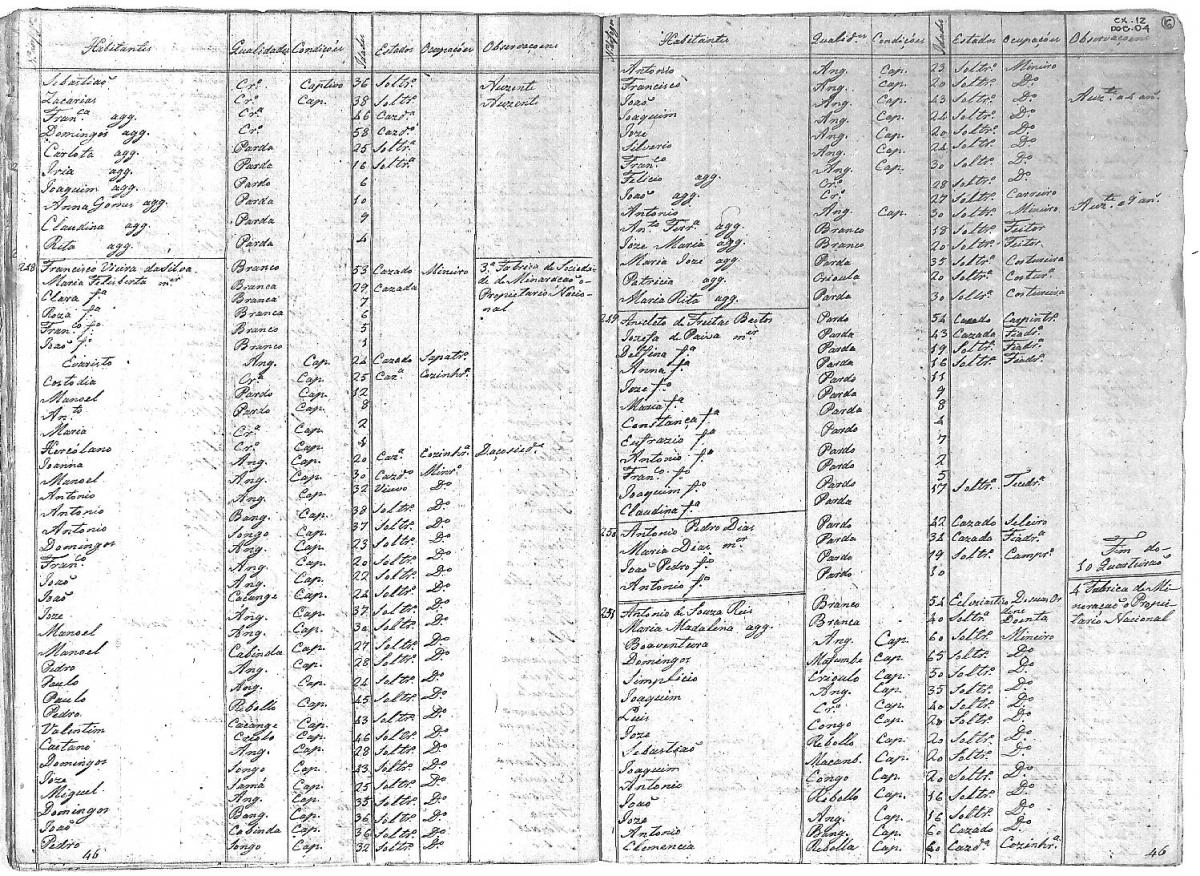 Habitantes Qualidades Condições Idades Estados Ocupações Observaçoens
Sebastiaõ Crº Captivo 36 Soltrº Auzente
Zacarias Crº Cap. 38 Soltrº Auzente
Franca agg. Crª 46 Cazdª
Domingos agg. Crº 58 Cazdº
Carlota agg. Parda 25 Soltrª
Iria agg. Parda 16 Soltrª
Joaquim agg. Pardo 6
Anna Gomes agg. Parda 10
Claudina agg. Parda 9
Rita agg. Parda 4
248 Francisco Vieira da Silva Branco 53 Cazado Mineiro 3.ª Fabrica de Socieda-
Maria Feliberta mer Branca 29 Cazada de de Mineracaõ o
Clara fª Branca 7 Propietario Nacio-
Roza fª Branca 6 nal
Franco fº Branco 5
Joaõ fº Branco 1
Evaristo Ang. Cap. 24 Cazado Sapatrº
Custodia Crª Cap. 25 Cazª Cozinhrª
Manoel Pardo Cap. 12
Anto Pardo Cap. 8
Maria Crª Cap. 2
Hercolano Crº Cap. 4
Joanna Ang. Cap. 20 Cazª Cozinhrª Da socied.
Manoel Ang. Cap. 30 Cazdº Minrº
Antonio Ang. Cap. 32 Viuvo Dº
Antonio Bang. Cap. 38 Soltrº Dº
Antonio Songo Cap. 37 Soltrº Dº
Domingos Ang. Cap. 23 Soltrº Dº
Franco Ang. Cap. 20 Soltrº Dº
Joaõ Ang. Cap. 22 Soltrº Dº
Joaõ Caçange Cap. 24 Soltrº Dº
Joze Ang. Cap. 37 Soltrº Dº
Manoel Ang. Cap. 30 Soltrº Dº
Manoel Cabinda Cap. 27 Soltrº Dº
Pedro Ang. Cap. 28 Soltrº Dº
Paulo Ang. Cap. 24 Soltrº Dº
Paulo Rebollo Cap. 45 Soltrº Dº
Pedro Caçange Cap. 43 Soltrº Dº
Valentim Criolo Cap. 46 Soltrº Dº
Caetano Ang. Cap. 28 Soltrº Dº
Domingos Songo Cap. 43 Soltrº Dº
Joze Cap. 25 Soltrº Dº
Miguel Ang. Cap. 35 Soltrº Dº
Domingos Bang. Cap. 36 Soltrº Dº
Joaõ Cabinda Cap. 36 Soltrº Dº
Pedro Songo Cap. 32 Soltrº Dº
46
CX-12
DOC-04
16
Habitantes Qualides Condições Idades Estados Ocupações Observaçoens
Antonio Ang. Cap. 23 Soltrº Mineiro
Francisco Ang. Cap. 20 Soltrº Dº
Joaõ Ang. Cap. 43 Soltrº Dº Auzte a 4 an.
Joaquim Ang. Cap. 24 Soltrº Dº
Joze Ang. Cap. 20 Soltrº Dº
Silverio Ang. Cap. 24 Soltrº Dº
Franco Ang. Cap. 30 Soltrº Dº
Felicio agg. Crº 28 Soltrº Dº
Joaõ agg. Crº 27 Soltrº Carreiro
Antonio Ang. Cap. 30 Soltrº Mineiro
Anto Ferrª agg. Branco 18 Soltrº Feitor
Joze Maria agg. Branco 20 Soltrº Feitor
Maria Joze agg. Parda 35 Soltrª Costureira
Patricia agg. Crioula 20 Soltrª Costurª
Maria Rita agg. Parda 30 Soltrª Costureira
249 Anicleto de Freitas Bastos Pardo 54 Cazado Carpintrº
Jozefa de Paiva mer Parda 43 Cazada Fiadrª
Delfina fª Parda 19 Soltrª Fiadrª
Anna fª Parda 16 Soltrª Fiadrª
Joze fº Pardo 11
Maria fª Parda 9
Constança fª Parda 8
Eufrazio fº Pardo 4
Antonio fº Pardo 7
Franco fº Pardo 2
Joaquim fº Pardo 5
Claudina fª Parda 17 Soltrª Fiadrª
250 Antonio Pedro Dias Pardo 42 Cazado Seleiro
Maria Dias mer Parda 34 Cazada Fiadrª
Joaõ Pedro fº Pardo 19 Soltrº Camprº Fim do
Antonio fº Pardo 10 10 Quarteiraõ
251 Antonio de Souza Reis Branco 54 Ecleziastico 4 Fabrica de Mi-
Maria Madalena agg. Branca 40 Soltrª Doente neraçaõ o Propie-
Boaventura Ang. Cap. 60 Soltrº Mineiro tario Nacional
Domingos Cap. 65 Soltrº Dº
Simplicio Crioulo Cap. 50 Soltrº Dº
Joaquim Ang. Cap. 35 Soltrº Dº
Luis Crº Cap. 40 Soltrº Dº
Joze Congo Cap. 20 Soltrº Dº
Sebastiaõ Rebollo Cap. 20 Soltrº Dº
Joaquim Macamb. Cap. 20 Soltrº Dº
Antonio Congo Cap. 20 Soltrº Dº
Joaõ Rebollo Cap. 16 Soltrº Dº
Joze Ang. Cap. 16 Soltrº Dº
Antonio Bang. Cap. 60 Cazado Dº
Clemencia Rebolla Cap. 40 Cazdª Cozinhrª
46